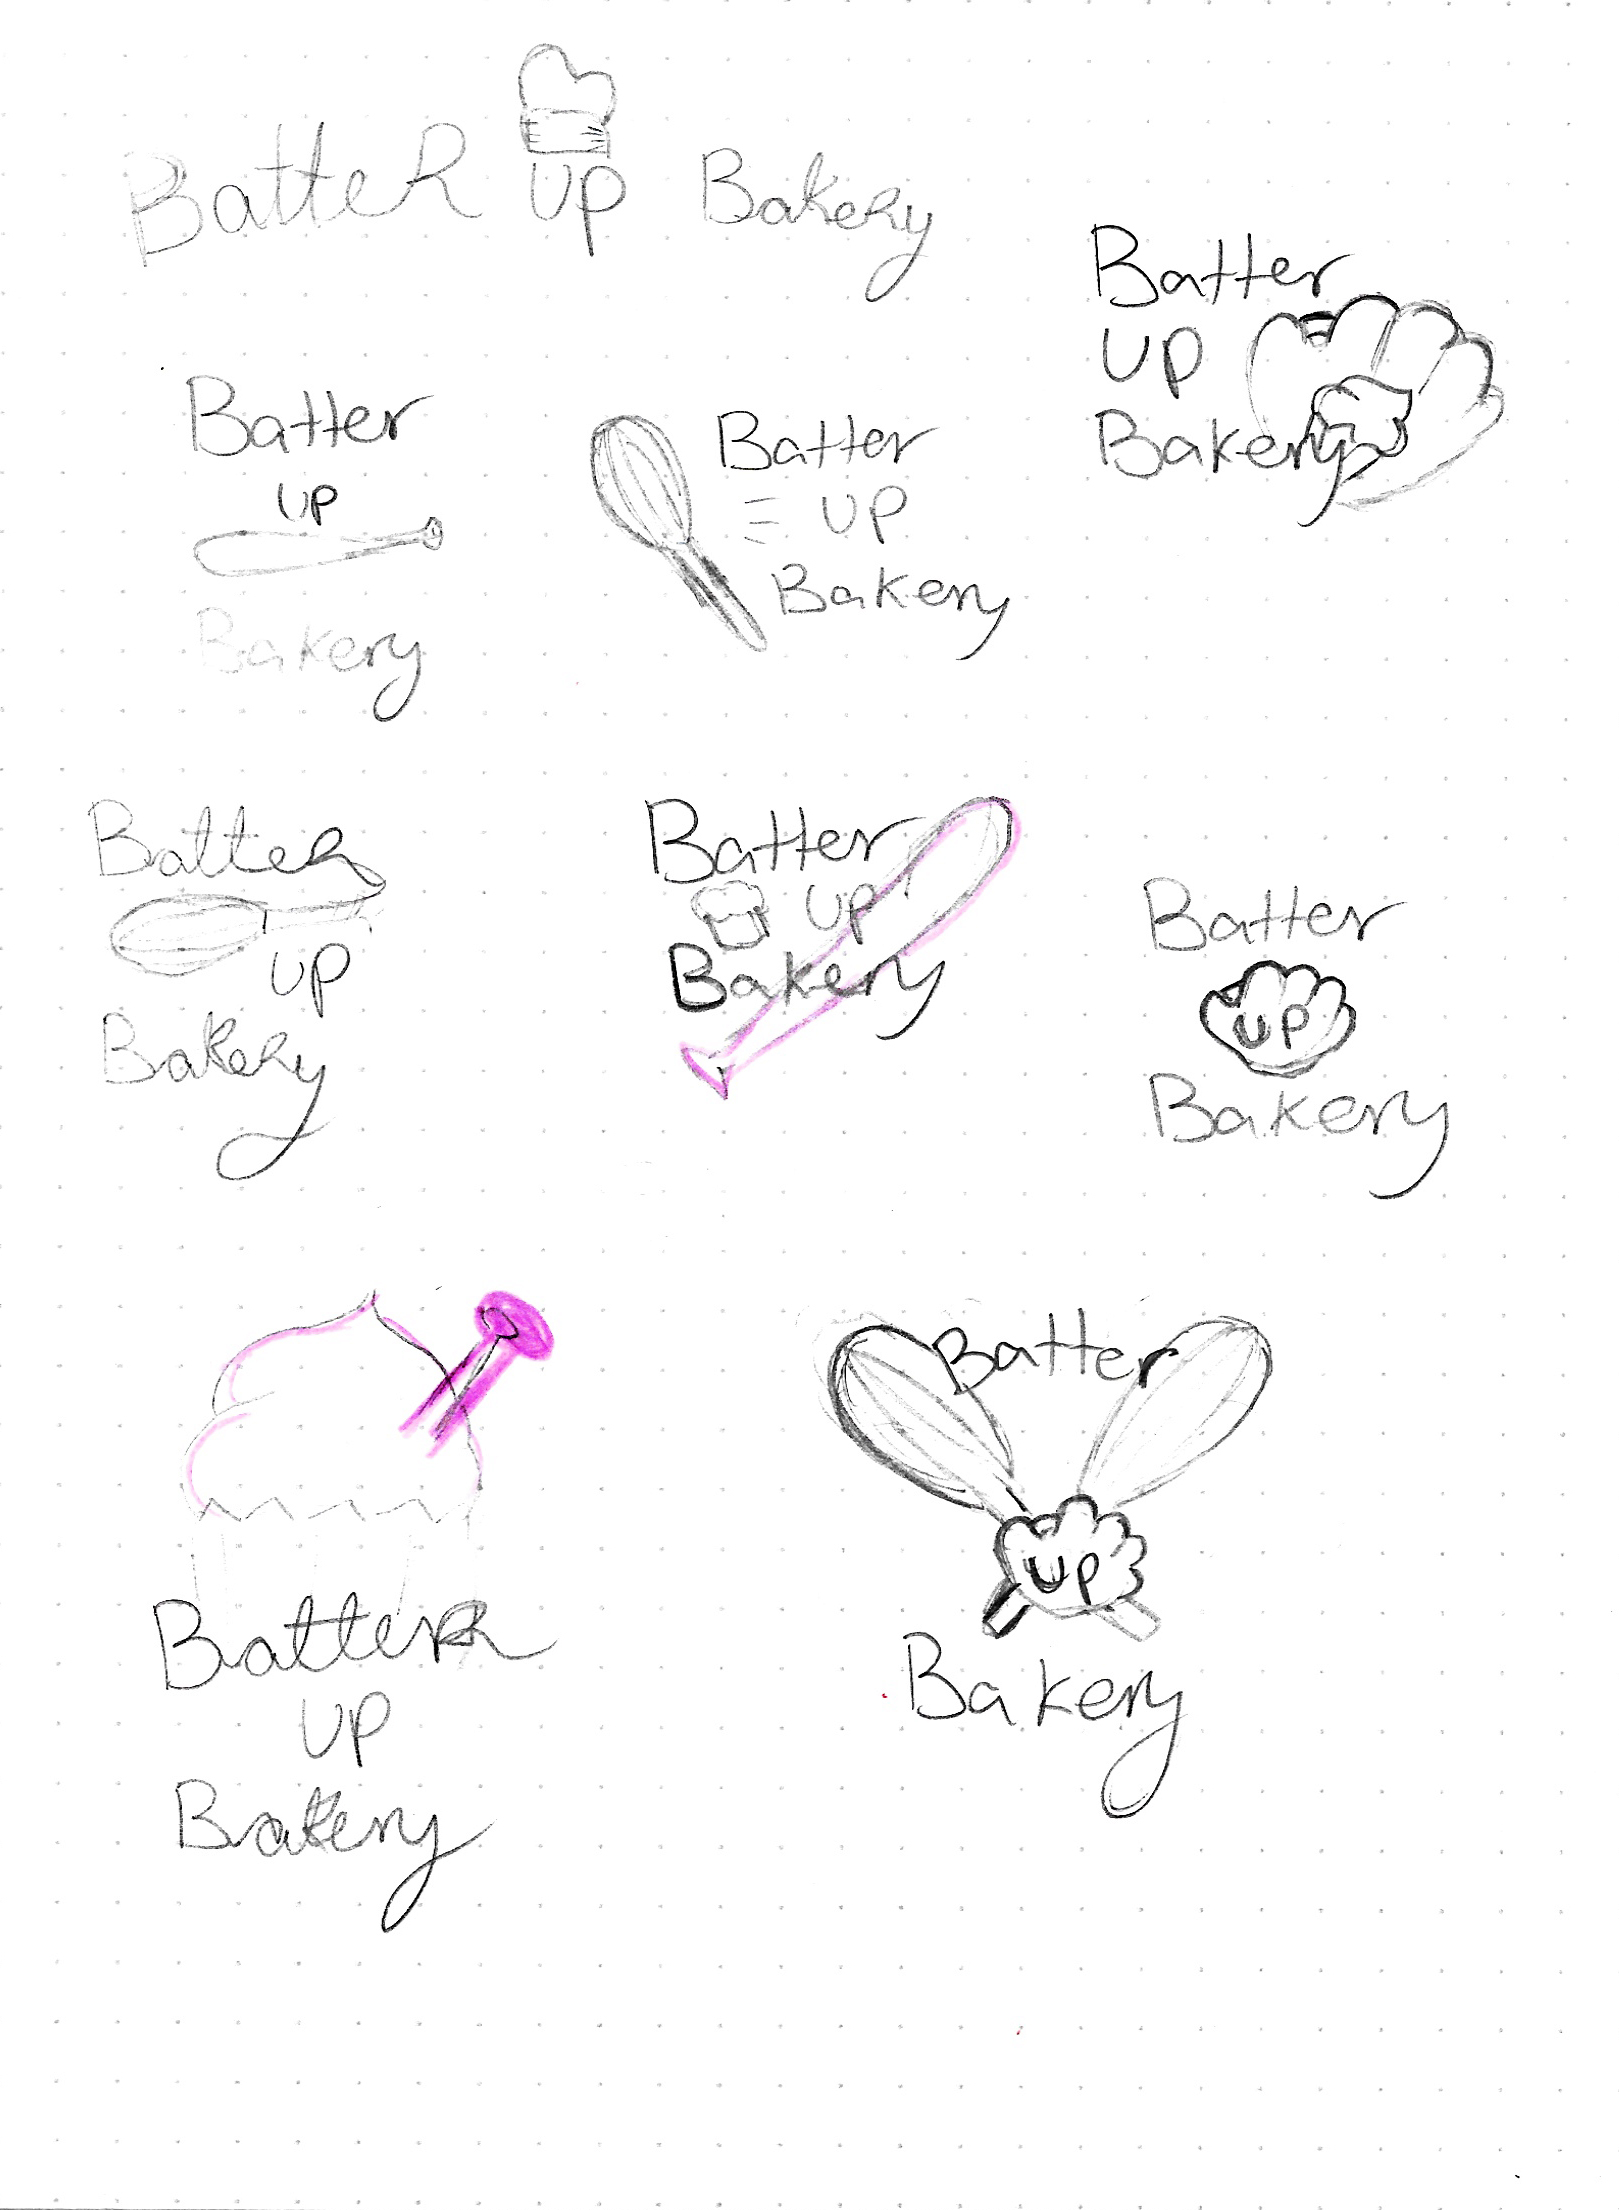 BatteR UP Bakery
Batter
UP
Bakery
Batter
UP
Bakery
Batter
UP
Bakery
Batter
UP
Bakery
Batter
UP
Bakery
Batter
UP
Bakery
Batter
UP
Bakery
Batter
UP
Bakery